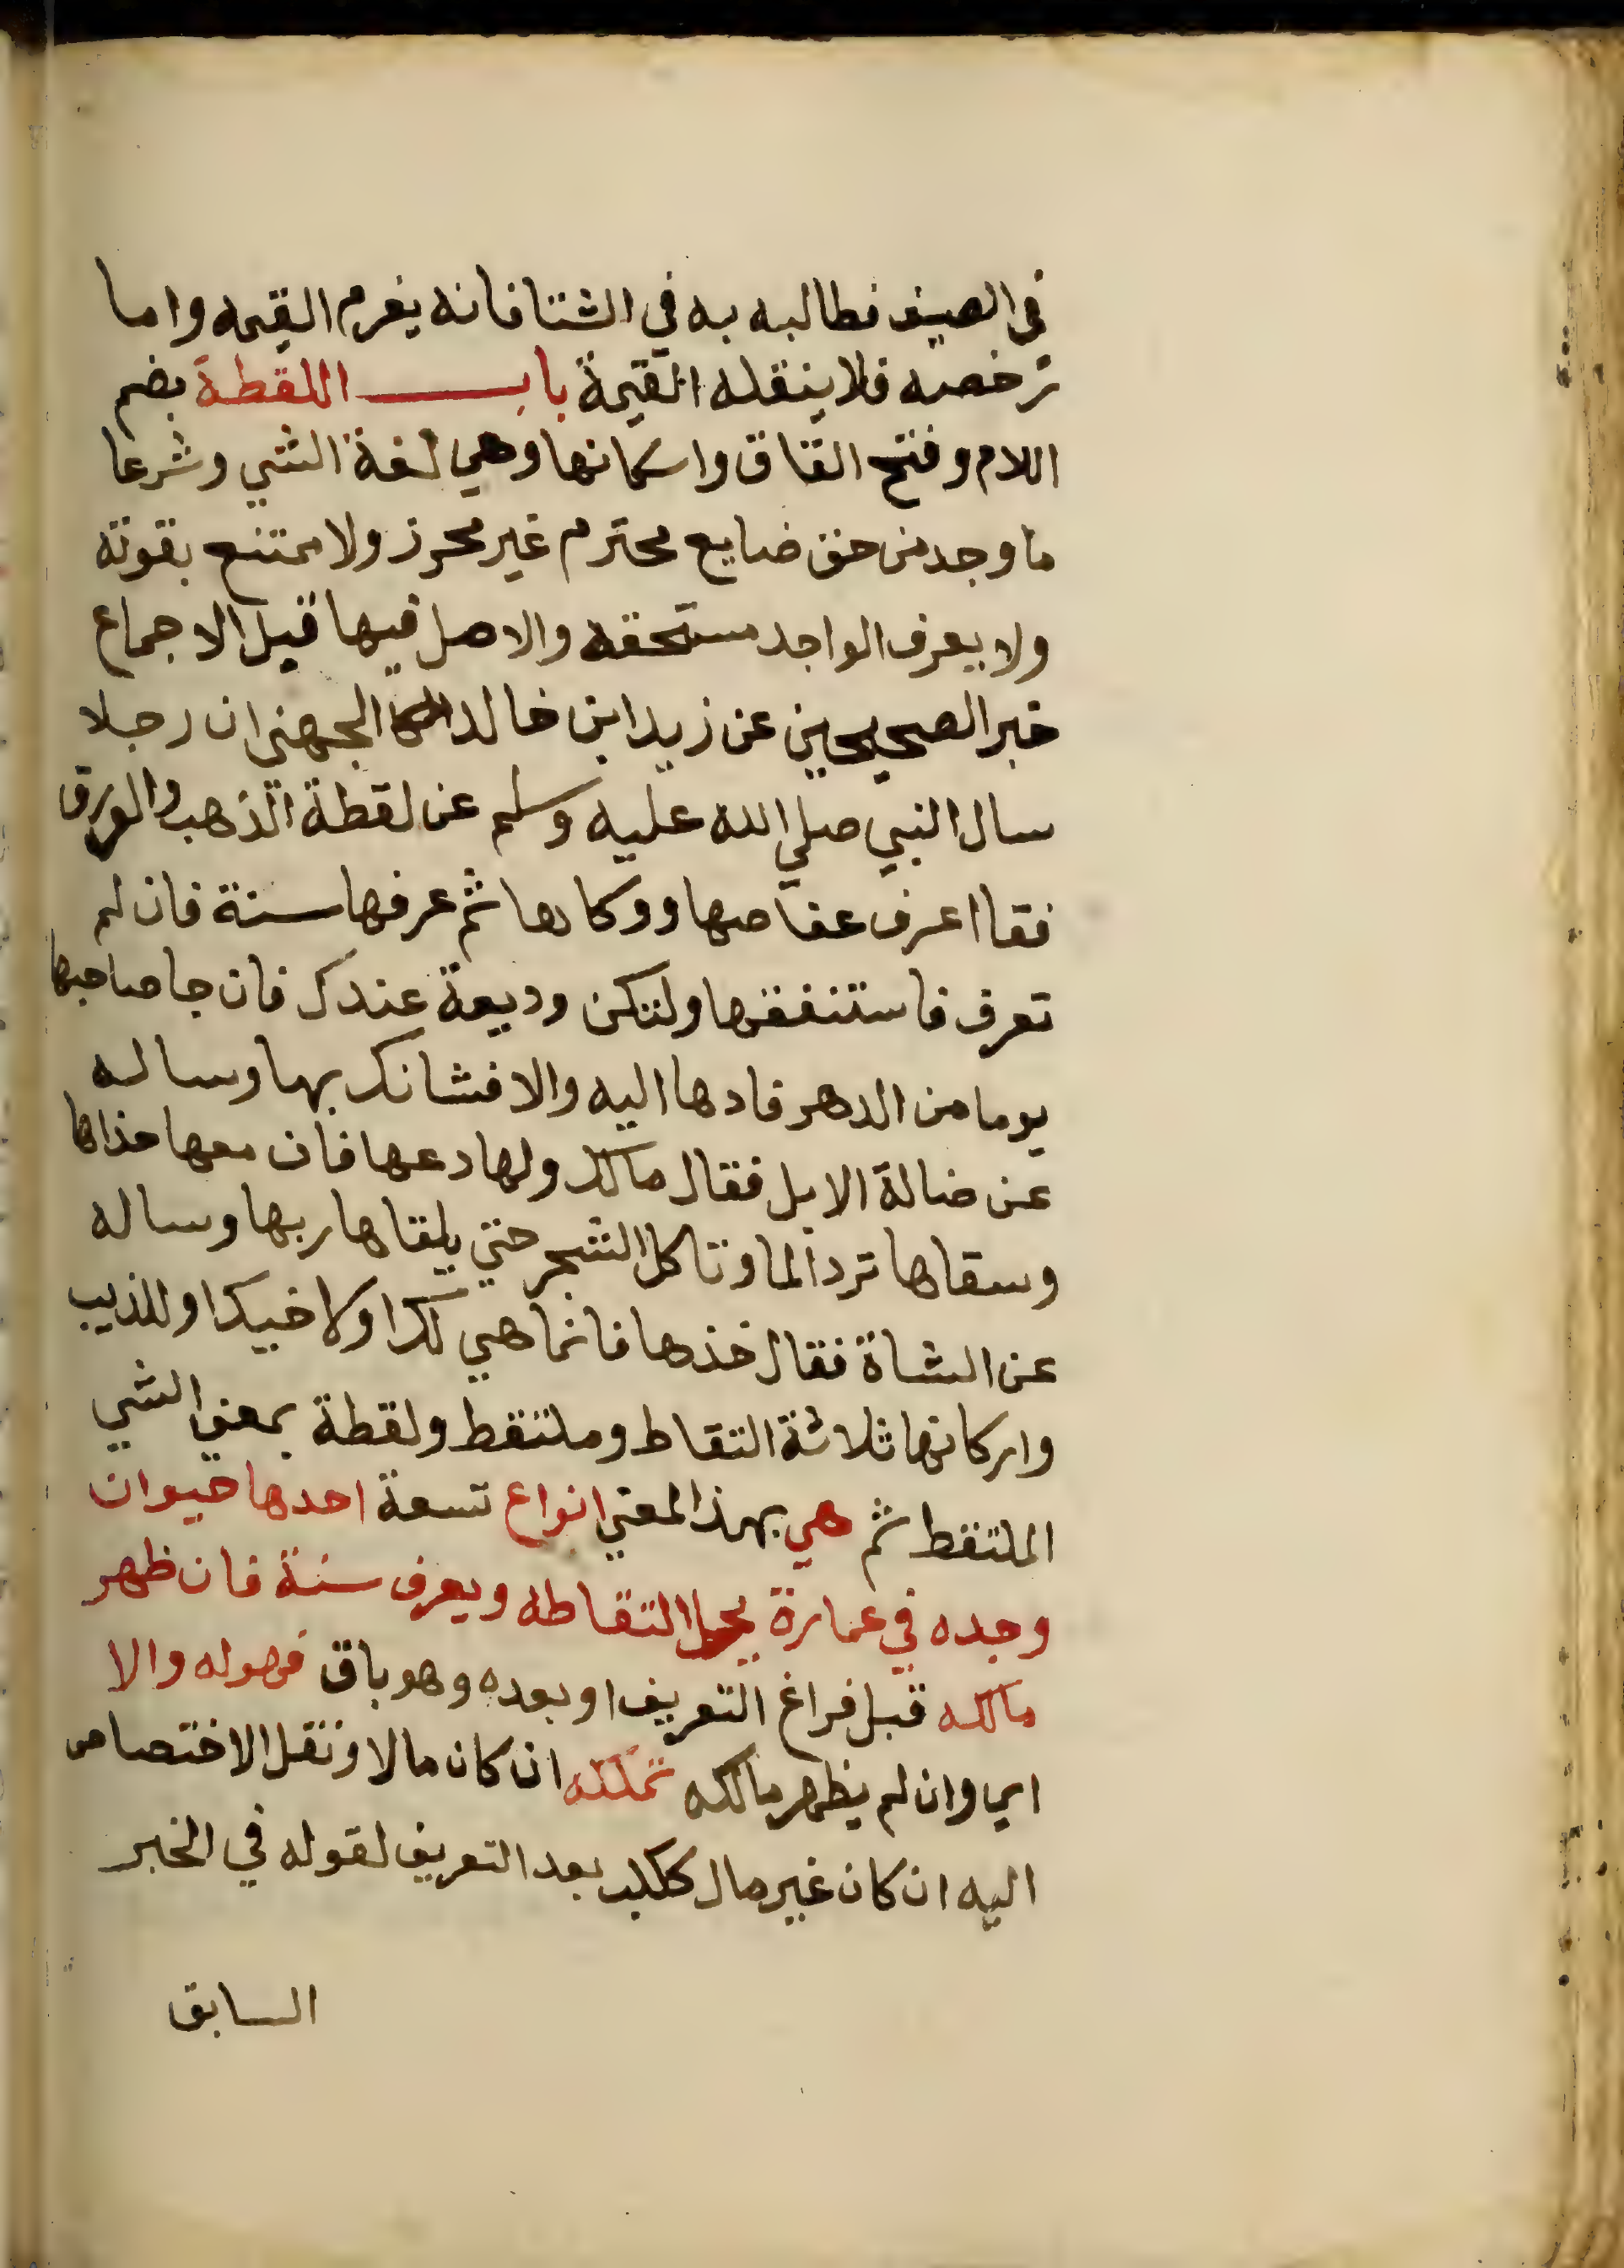 في الصيف فطالبه به في الشتا فانه يغرم القيمه واما
رخصه فلا ينقله القيمة باب اللقطة بضم
اللام وفتح القاق واسكانها وهي لغة الشي وشرعا
ما وجد من حق ضايع محترم غير محرز ولا ممتنع بقوته
ولا يعرف الواجد مستحقه والاصل فيها قبل الاجماع
خبر الصحيحين عن زيد ابن خالد الجهني ان رجلا
سال النبي صلي الله عليه وسلم عن لقطة الذهب والورق
فقا اعرف عفاصها ووكاها ثم عرفها سنة فان لم
تعرف فاستنفقها ولتكن وديعة عندك فان جا صاحبها
يوما من الدهر فادها اليه والا فشانك بها وساله
عن ضالة الابل فقال مالك ولها دعها فان معها حذاها
وسقاها ترد الما وتاكل الشجر حتي يلقاها ربها وساله
عن الشاة فقال خذها فانما هي لك او لاخيك او للذيب
واركانها ثلاثة التقاط وملتقط ولقطة بمعني الشي
الملتقط ثم هي بهذا المعني انواع تسعة احدها حيوان
وجده في عمارة يحل التقاطه ويعرف سنة فان ظهر
مالكه قبل فراغ التعريف او بعده وهو باق فهو له والا
اي وان لم يظهر مالكه تملكه ان كان مالا ونقل الاختصاص
اليه ان كان غير مال ككلب بعد التعريف لقوله في الخبر
السابق